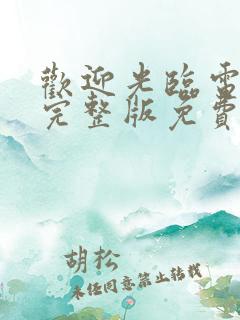 歡迎光臨電
完整版免費
胡松
未经同意禁止转载